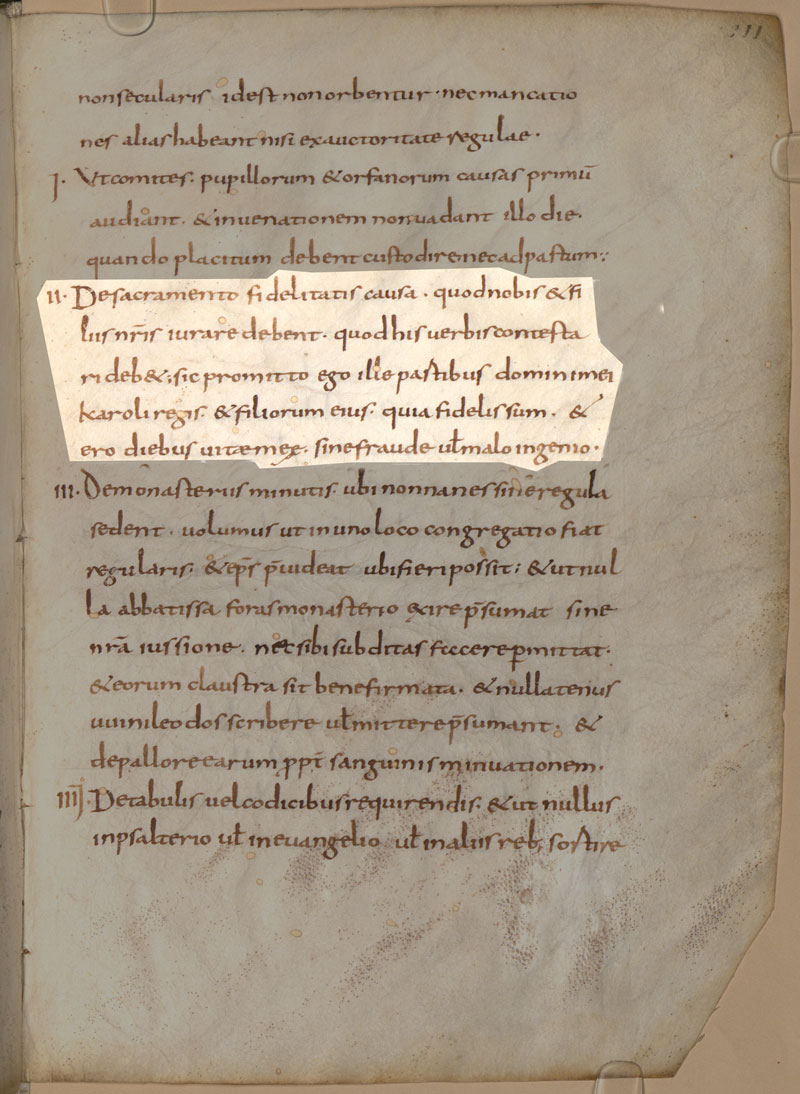 211
nonsecularis idest non orbentur · nec mancatio
nes alias habeant nisi ex auctoritate regulae ·
I · Ut comites · pupillorum & orfanorum causas primū
audiant · & in uenationem non uadant illo die ·
quando placitum debent custodire nec ad pastum ·
II · De sacramento fidelitatis causa · quod nobis & fi
liis nr̄is iurare debent · quod his uerbis contesta
ri deb& ; sic promitto ego ille pastibus domini mei
karoli regis · & filiorum eius · quia fidelis sum · &
ero diebus uitae meę · sine fraude ul̄ malo ingenio ·
III · De monasteriis minutis ubi nonnanes sine regula
sedent · uolumus ut in uno loco congregatio fiat
regularis · & ep̄s p̄uideat ubi fieri possit ; & ut nul
la abbatissa foras monasterio exire p̄sumat sine
nr̄a iussione · nec sibi subditas facere ꝑmittat ·
& eorum claustra sit bene firmata · & nullatenus
uuinileodos scribere ul̄ mittere p̄sumant · &
de pallore earum ꝓpt̄ sanguinis minuationem ·
IIII · De tabulis uel codicibus requirendis · & ut nullus
in psalterio ul̄ in euangelio ul̄ in aliis reb; sortire